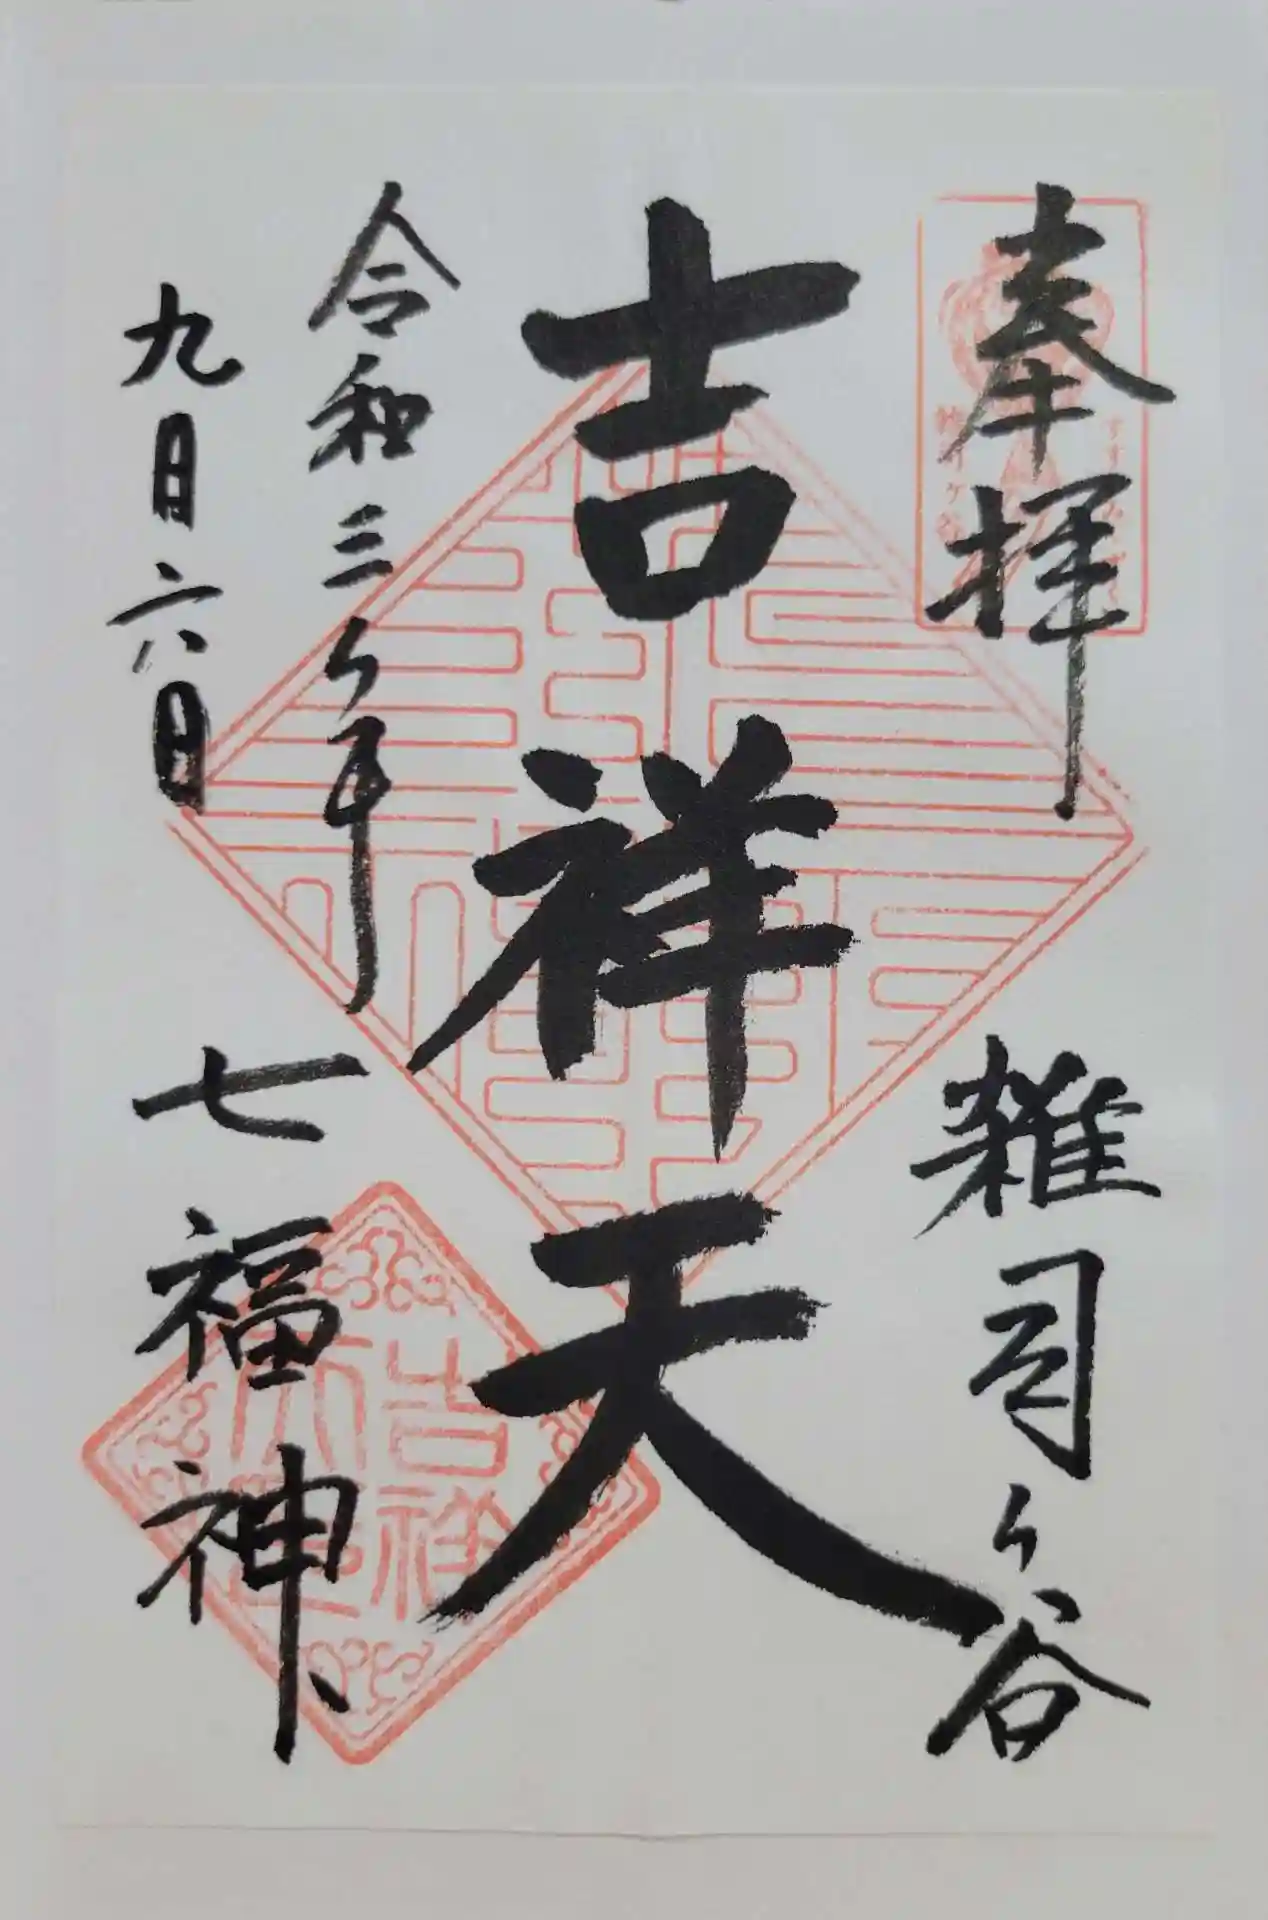 奉拝
雑司ヶ谷
吉祥天
令和三ヶ年
九月六日
七福神
吉祥